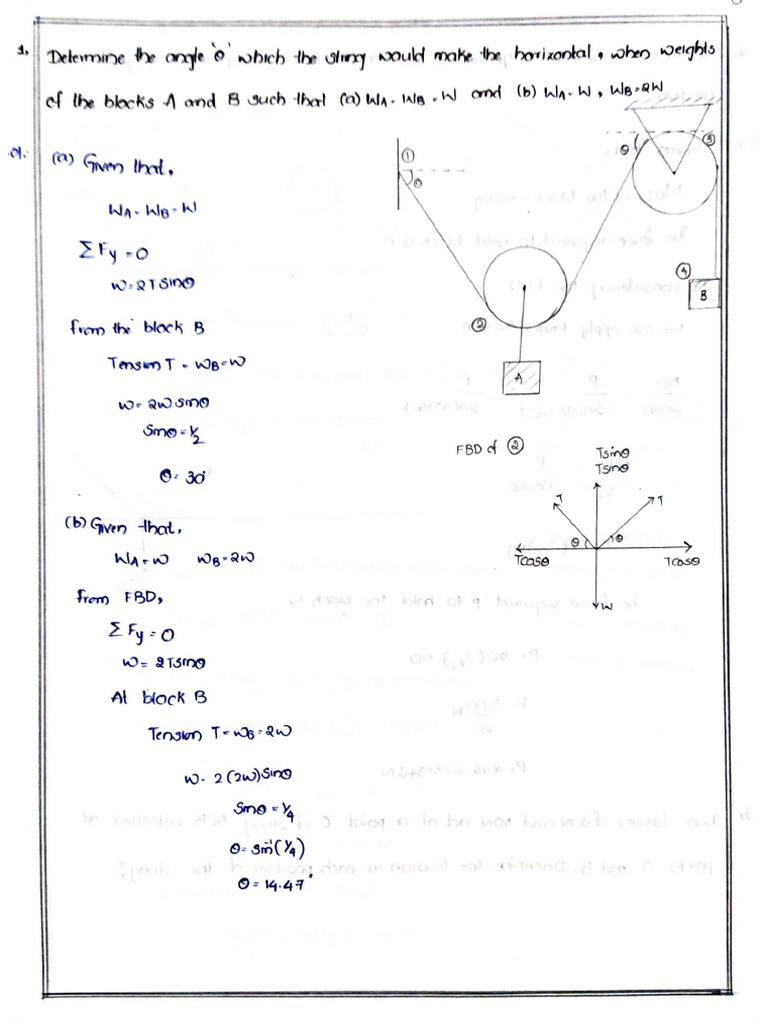 1, Determine the angle 'θ' which the string would make the horizontal, when weights
of the blocks A and B such that (a) WA = WB = W and (b) WA = W, WB = 2W
(a) Given that,
WA = WB = W
ΣFy = 0
W = 2Tsinθ
from the block B
Tension T = WB = W
W = 2W sinθ
Sinθ = 1/2
θ = 30°
(b) Given that,
WA = W WB = 2W
from FBD,
ΣFy = 0
W = 2Tsinθ
At block B
Tension T = WB = 2W
W = 2(2W)sinθ
Sinθ = 1/4
θ = sin⁻¹(1/4)
θ = 14.47°
①
θ
θ
③
②
A
④
B
FBD of ②
Tsinθ
Tsinθ
T
T
θ
θ
Tcosθ
Tcosθ
W